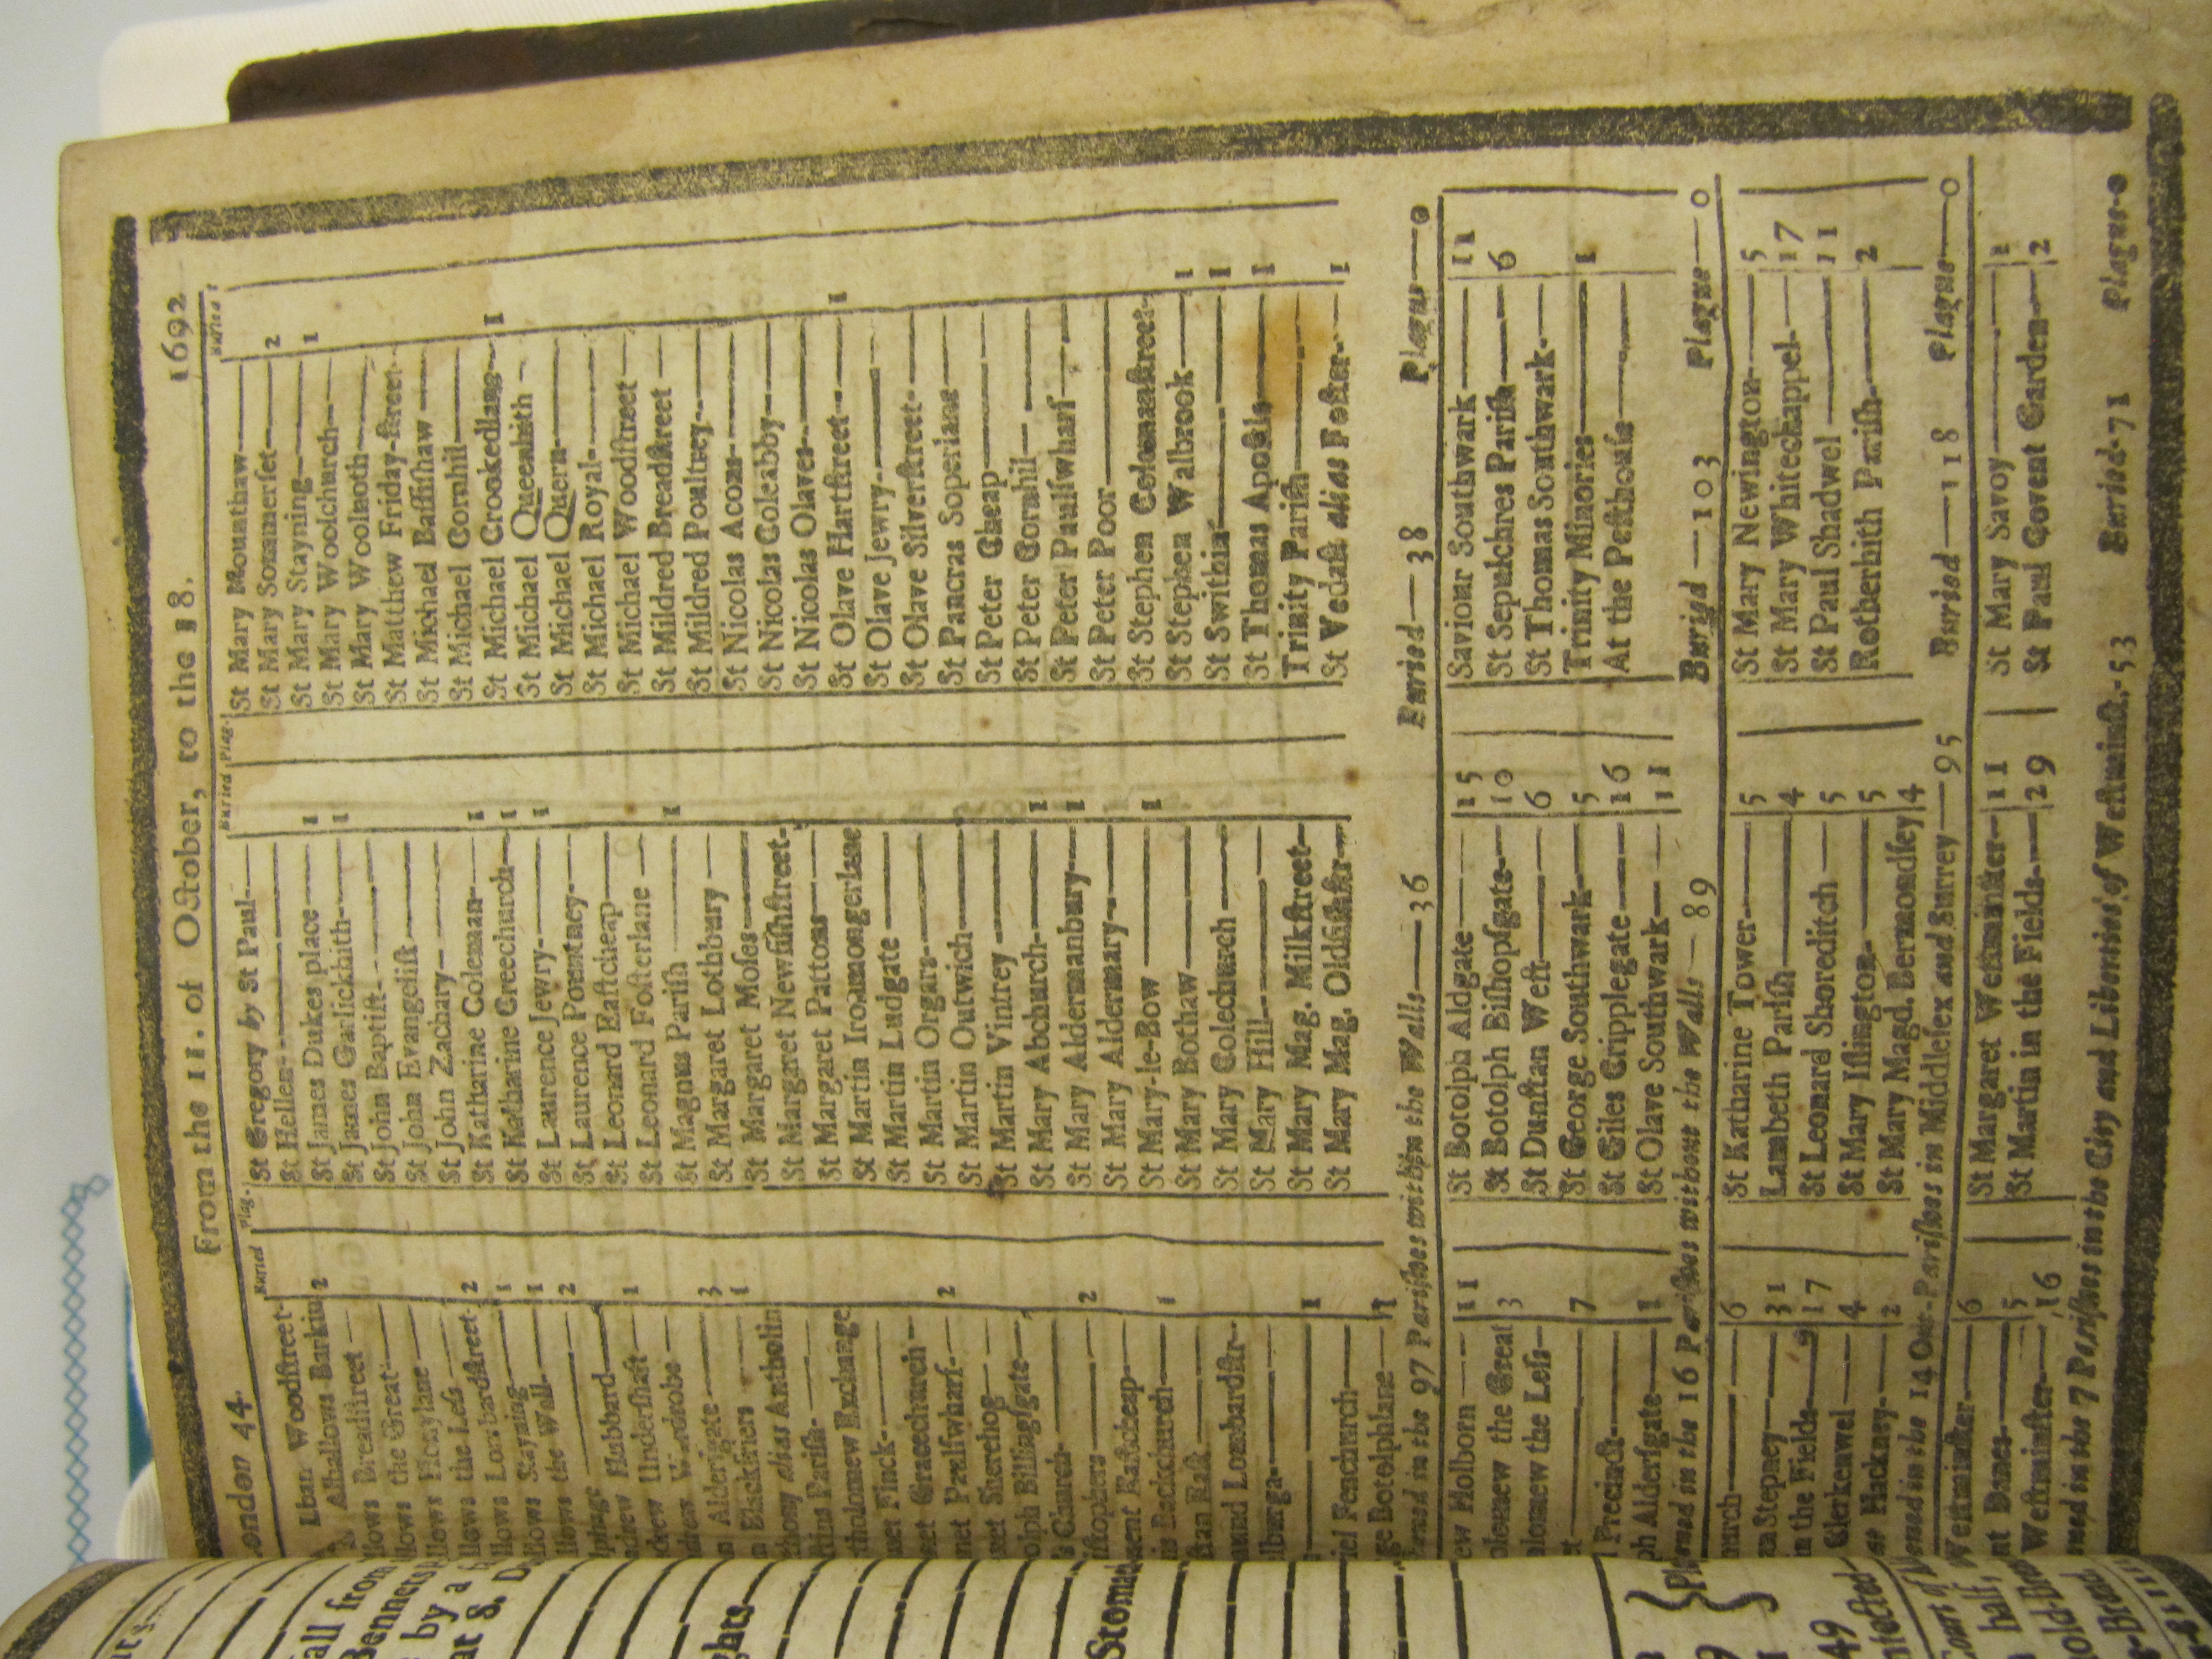 London 44. From the 11. of October, to the 18. 1692
Buried Plag.
Buried Plag.
Buried
Lban Woodſtreet
Alhallows Barkin 2
llows Breadſtreet
llows the Great
llows Honylane
llows the Leſs 2
llows Lombardſtreet 1
llows Stayning 1
llows the Wall 2
lphage
ndrew Hubbard 1
ndrew Underſhaft
ndrew Wardrobe 3
n Alderſgate 1
n Blackfriers
thony alias Antholin
ſtins Pariſh
rtholomew Exchange
net Finck
net Gracechurch 2
net Paulſwharf
net Sherehog
olph Billingſgate
s Church 2
iſtophers
ment Eaſtcheap 1
is Backchurch
ſtan Eaſt
mund Lombardſtr.
lburga 1
iel Fenchurch 1
ge Botolphlane
St Gregory by St Paul
St Hellen
St James Dukes place 1
St James Garlickhith 1
St John Baptiſt
St John Evangeliſt
St John Zachary
St Katharine Coleman 1
St Katharine Creechurch 1
St Laurence Jewry 1
St Laurence Pountney
St Leonard Eaſtcheap
St Leonard Foſterlane
St Magnus Pariſh 1
St Margaret Lothbury
St Margaret Moſes
St Margaret Newfiſhſtreet
St Margaret Pattons
St Martin Ironmongerlane
St Martin Ludgate
St Martin Orgars
St Martin Outwich
St Martin Vintrey
St Mary Abchurch 1
St Mary Aldermanbury 1
St Mary Aldermary
St Mary-le-Bow 1
St Mary Bothaw
St Mary Colechurch
St Mary Hill
St Mary Mag. Milkſtreet
St Mary Mag. Oldfiſhſtr
St Mary Mounthaw
St Mary Sommerſet 2
St Mary Stayning 1
St Mary Woolchurch
St Mary Woolnoth
St Matthew Friday-ſtreet
St Michael Baſſiſhaw
St Michael Cornhil
St Michael Crookedlane 1
St Michael Queenhith
St Michael Quern
St Michael Royal
St Michael Woodſtreet
St Mildred Breadſtreet
St Mildred Poultrey
St Nicolas Acons
St Nicolas Coleabby
St Nicolas Olaves
St Olave Hartſtreet 1
St Olave Jewry
St Olave Silverſtreet
St Pancras Soperlane
St Peter Cheap
St Peter Cornhil
St Peter Paulſwharf
St Peter Poor
St Stephen Colemanſtreet
St Stephen Walbrook 1
St Swithin 1
St Thomas Apoſtle 1
Trinity Pariſh
St Vedaſt alias Foſter 1
in the 97 Pariſhes within the Walls—36 Buried—38 Plague—0
ew Holborn 11
olomew the Great 3
olomew the Leſs
et 7
l Precinct
ph Alderſgate 1
St Botolph Aldgate 15
St Botolph Biſhopſgate 10
St Dunſtan Weſt 6
St George Southwark 5
St Giles Cripplegate 16
St Olave Southwark 11
Saviour Southwark 11
St Sepulchres Pariſh 6
St Thomas Southwark
Trinity Minories 1
At the Peſthouſe
in the 16 Pariſhes without the Walls—89 Buried—103 Plague—0
hurch 6
an Stepney 31
in the Fields 17
Clerkenwel 4
Hackney 2
St Katharine Tower 5
Lambeth Pariſh 4
St Leonard Shoreditch 5
St Mary Iſlington 5
St Mary Magd. Bermondſey 4
St Mary Newington 5
St Mary Whitechappel 17
St Paul Shadwel 11
Rotherhith Pariſh 2
in the 14 Out-Pariſhes in Middleſex and Surrey—95 Buried—118 Plague—0
Weſtminſter 6
nt Danes 5
Weſtminſter 16
St Margaret Weſtminſter 11
St Martin in the Fields 29
St Mary Savoy 1
St Paul Covent Garden 2
in the 7 Pariſhes in the City and Liberties of Weſtminſt.-53 Buried-71 Plague-0
all from
Bennets
by a
at 8.
ghts
Stomac
49
nfected
Court of
half,